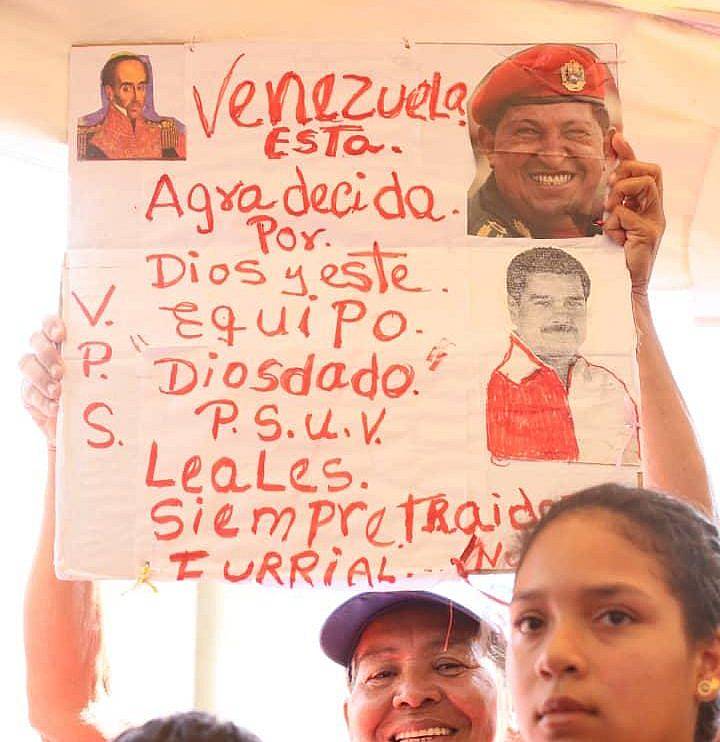 Venezuela
ESTa.
Agradecida.
Por.
Dios y este.
V. EquiPo.
P. "Diosdado."
S. P.S.U.V.
Leales.
Siempre
FURRIAL.